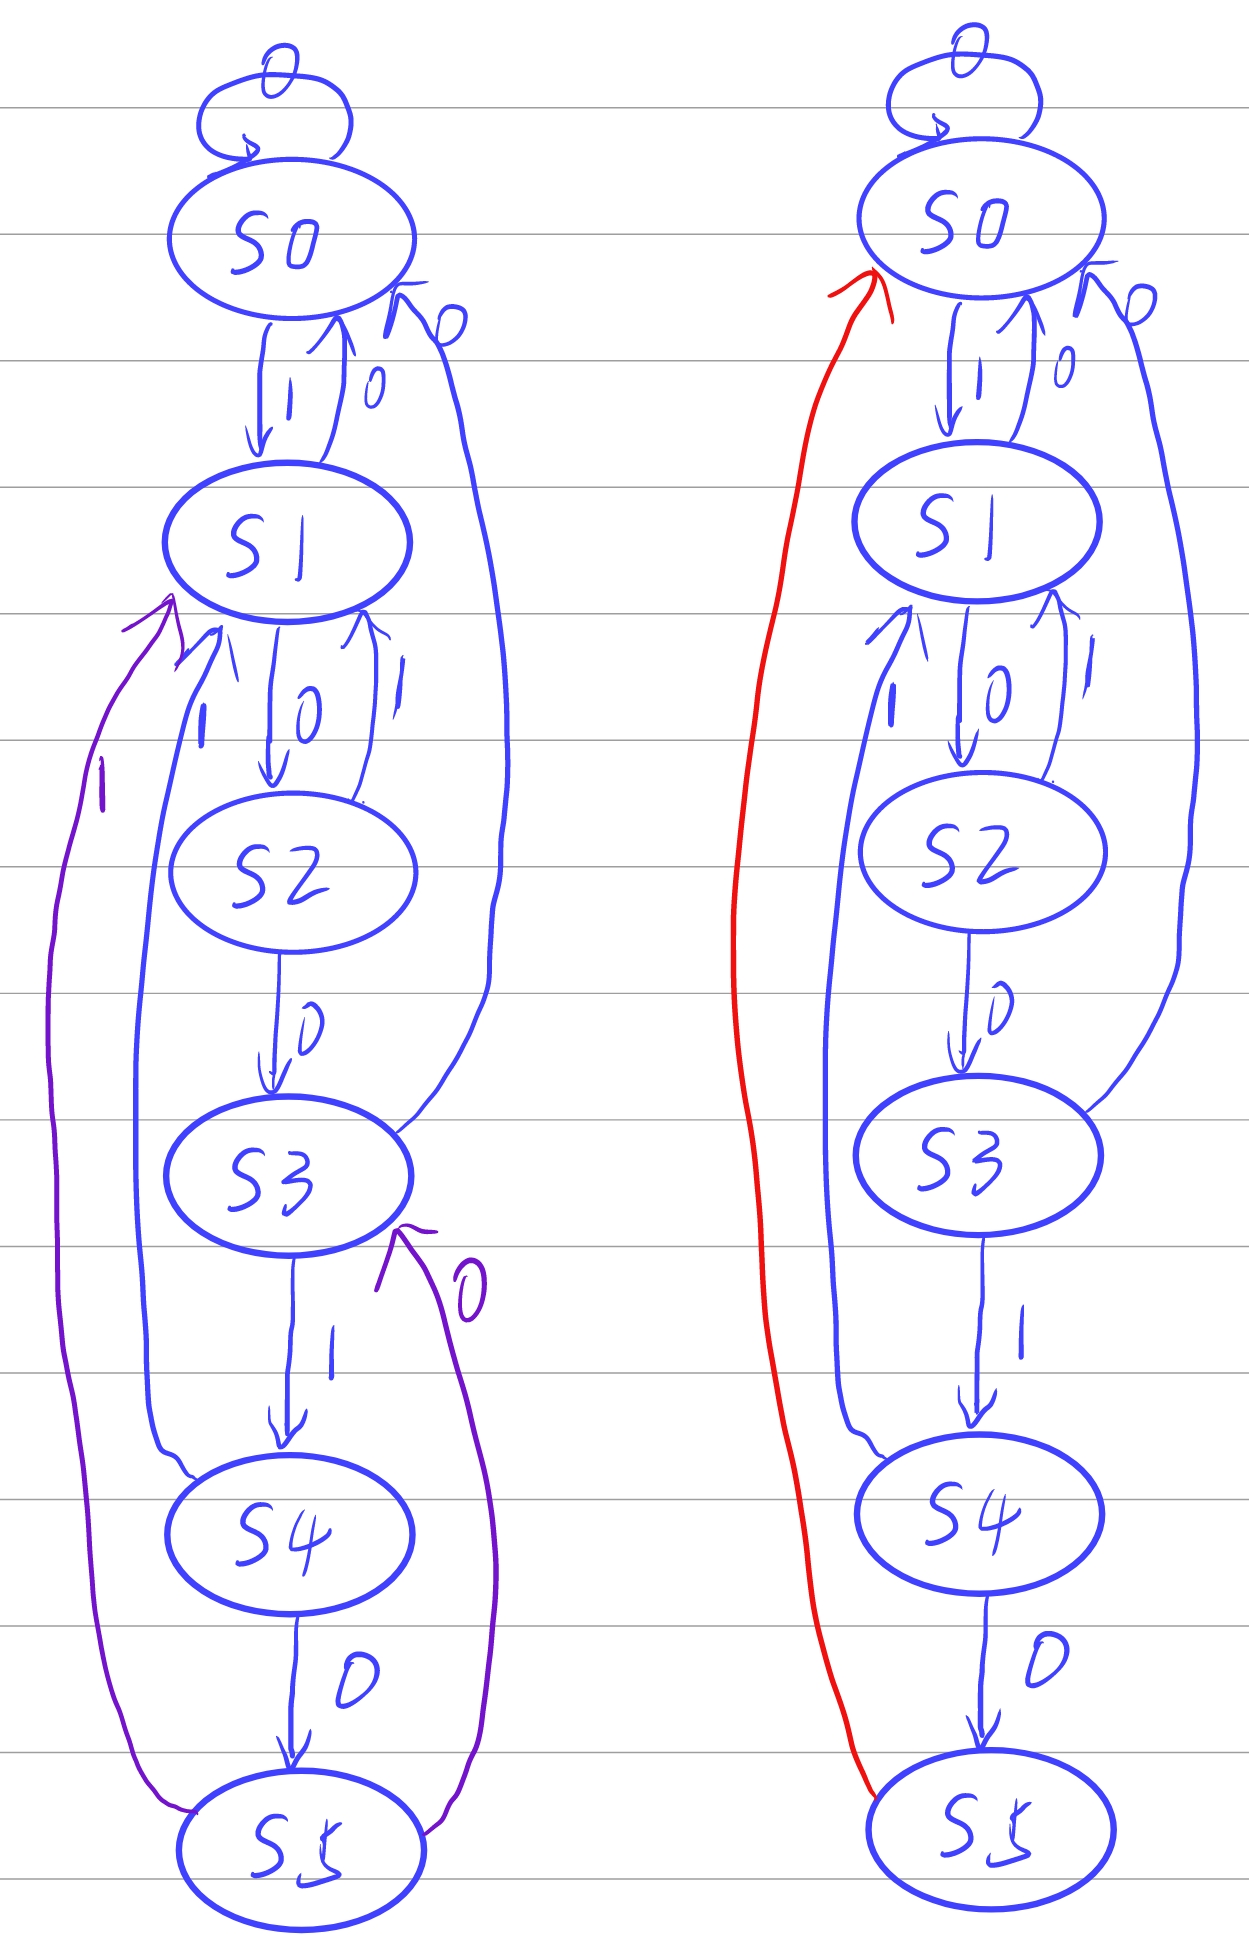 0
S0
1 0 0
S1
1 1 0 1
S2
0
S3
1 0
S4
0
S5
0
S0
1 0 0
S1
1 0 1
S2
0
S3
1
S4
0
S5